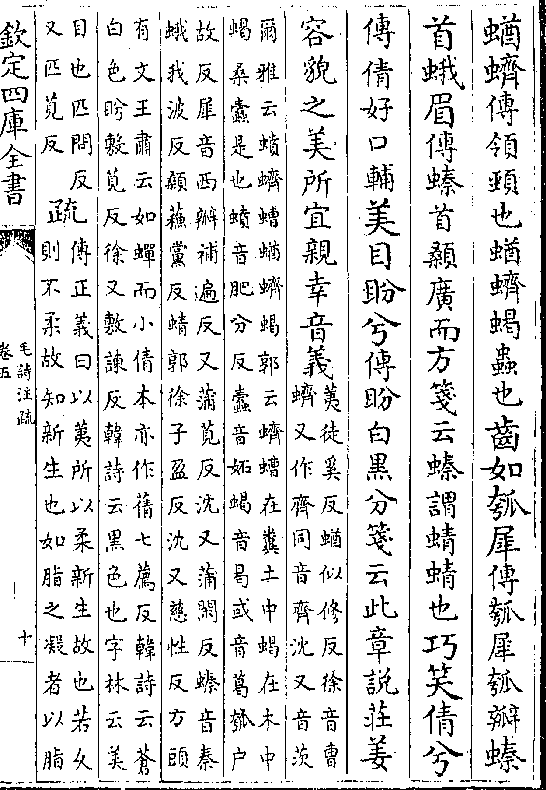 蝤蠐傳領頸也蝤蠐蝎蟲也齒如瓠犀傳瓠犀瓠瓣螓
首蛾眉傳螓首顙廣而方箋云螓謂蜻蜻也巧笑倩兮
傳倩好口輔美目盼兮傳盼白黒分箋云此章説莊姜
容貌之美所宜親幸音義
荑徒奚反蝤似修反徐音曹
蠐又作齊同音齊沈又音茨
爾雅云蟦蠐螬蝤蠐蝎郭云蠐螬在糞土中蝎在木中
蝎桑蠹是也蟦音肥分反蠹音妬蝎音曷或音葛瓠户
故反犀音西瓣補遍反又蒲莧反沈又蒲閑反螓音秦
蛾我波反顙蘓黨反蜻郭徐子盈反沈又慈性反方頭
有文王肅云如蟬而小倩本亦作蒨七薦反韓詩云蒼
白色盼敷莧反徐又敷諫反韓詩云黒色也字林云美
目也匹問反
又匹莧反
疏
傳正義曰以荑所以柔新生故也若久
則不柔故知新生也如脂之凝者以脂
欽定四庫全書
毛詩注疏
卷五
十